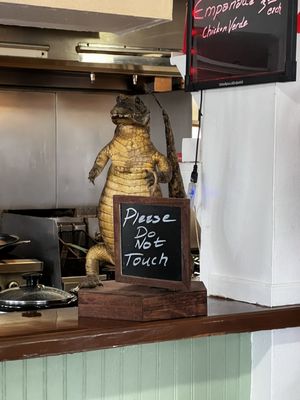 Empanadas
each
Chicken Verde
Please
Do
Not
Touch